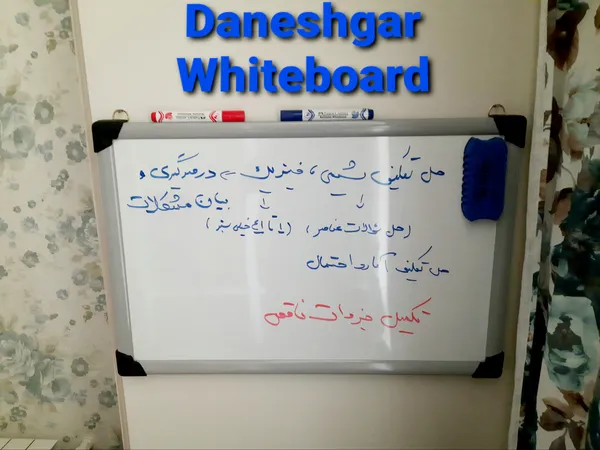 Daneshgar
Whiteboard
حل تکلیف شیمی ، فیزیک ← درگیری و
بیان مشکلات
(حل سوالات عناصر)
حل تکلیف آمار و احتمال
تکمیل جزوات ناقص